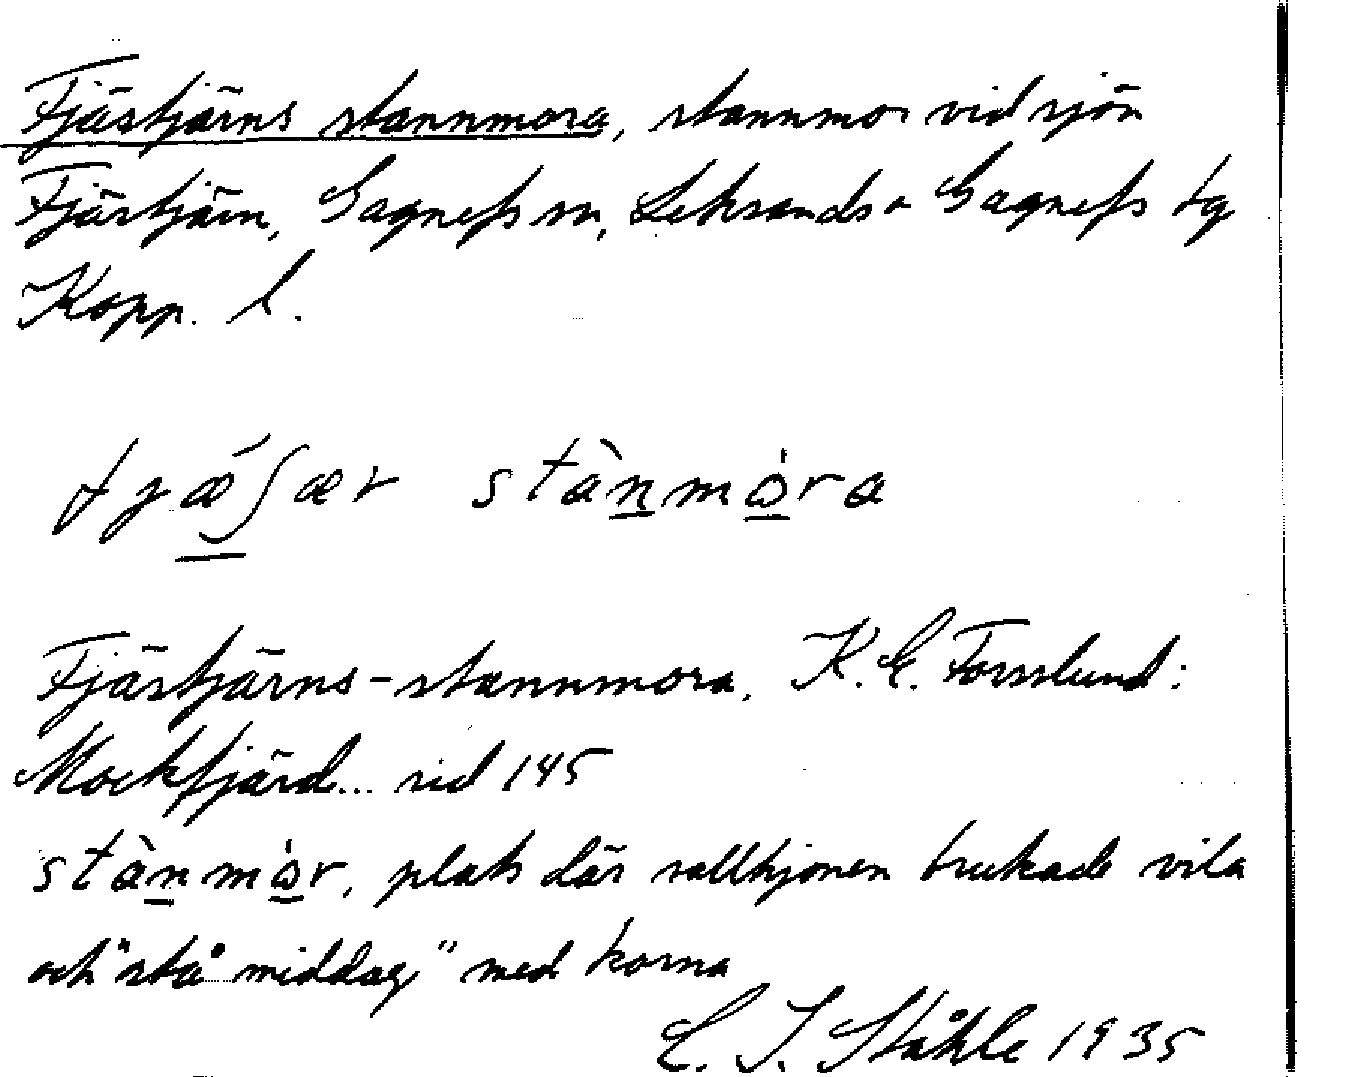 Fjästjärns stannmora, stannmor vid sjön
Fjästjärn, Gagnefs sn, Leksands o Gagnefs tg
Kopp. l.
stànmòra
Fjästjärns-stannmora. K.E. Forsslund:
Mockfjärd... sid 145
stànmòr, plats där vallhjonen brukade vila
och "stå middag" med korna
C. I. Ståhle 1935